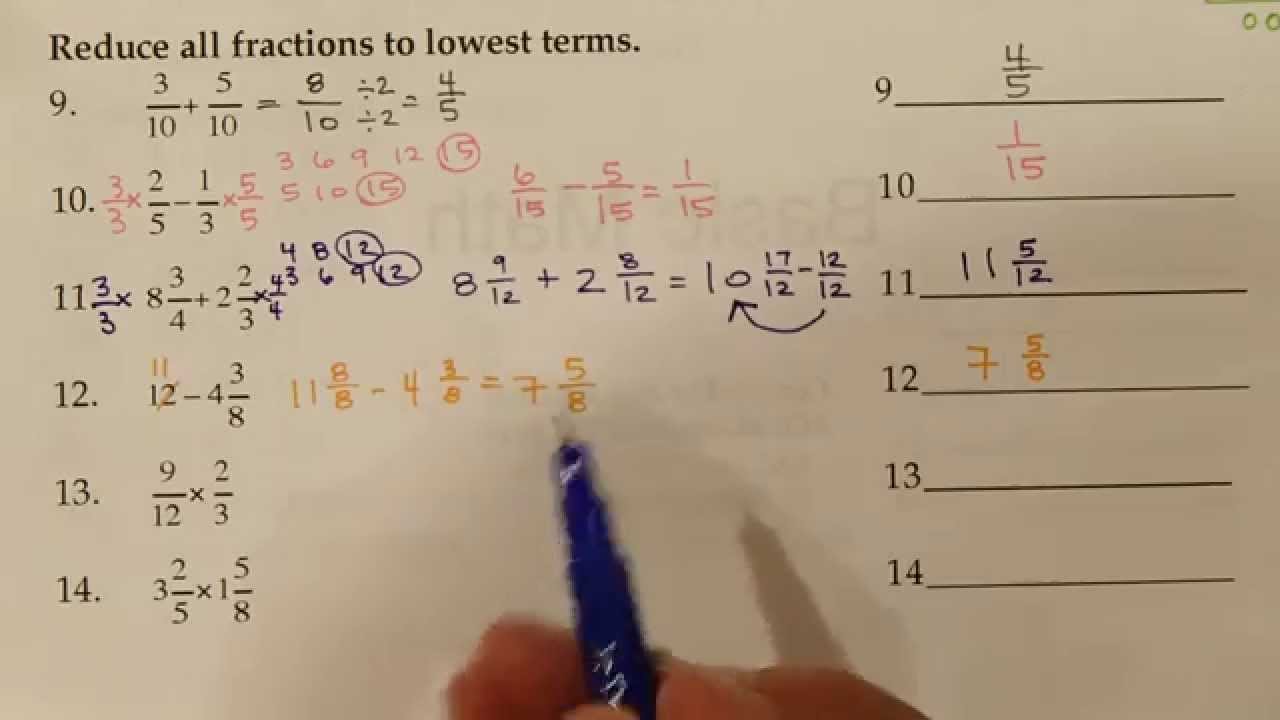 Reduce all fractions to lowest terms.
9. 3/10 + 5/10 = 8/10 ÷2/÷2 = 4/5 9 4/5
3 6 9 12 15
10. 3/3 × 2/5 − 1/3 × 5/5 5 10 15 6/15 − 5/15 = 1/15 10 1/15
4 8 12
3 6 9 12
11 3/3 × 8 3/4 + 2 2/3 × 4/4 8 9/12 + 2 8/12 = 10 17/12 − 12/12 11 11 5/12
11
12. 12 − 4 3/8 11 8/8 − 4 3/8 = 7 5/8 12 7 5/8
13. 9/12 × 2/3 13
14. 3 2/5 × 1 5/8 14
Basic Math